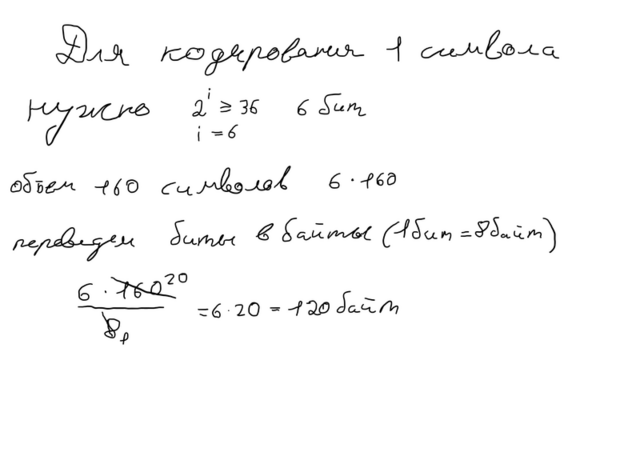 Для кодирования 1 символа
нужно 2^i ≥ 36 6 бит
i = 6
объем 160 символов 6 · 160
переведем биты в байты (1 бит = 8 байт)
6 · 160 20 / 8 1 = 6 · 20 = 120 байт